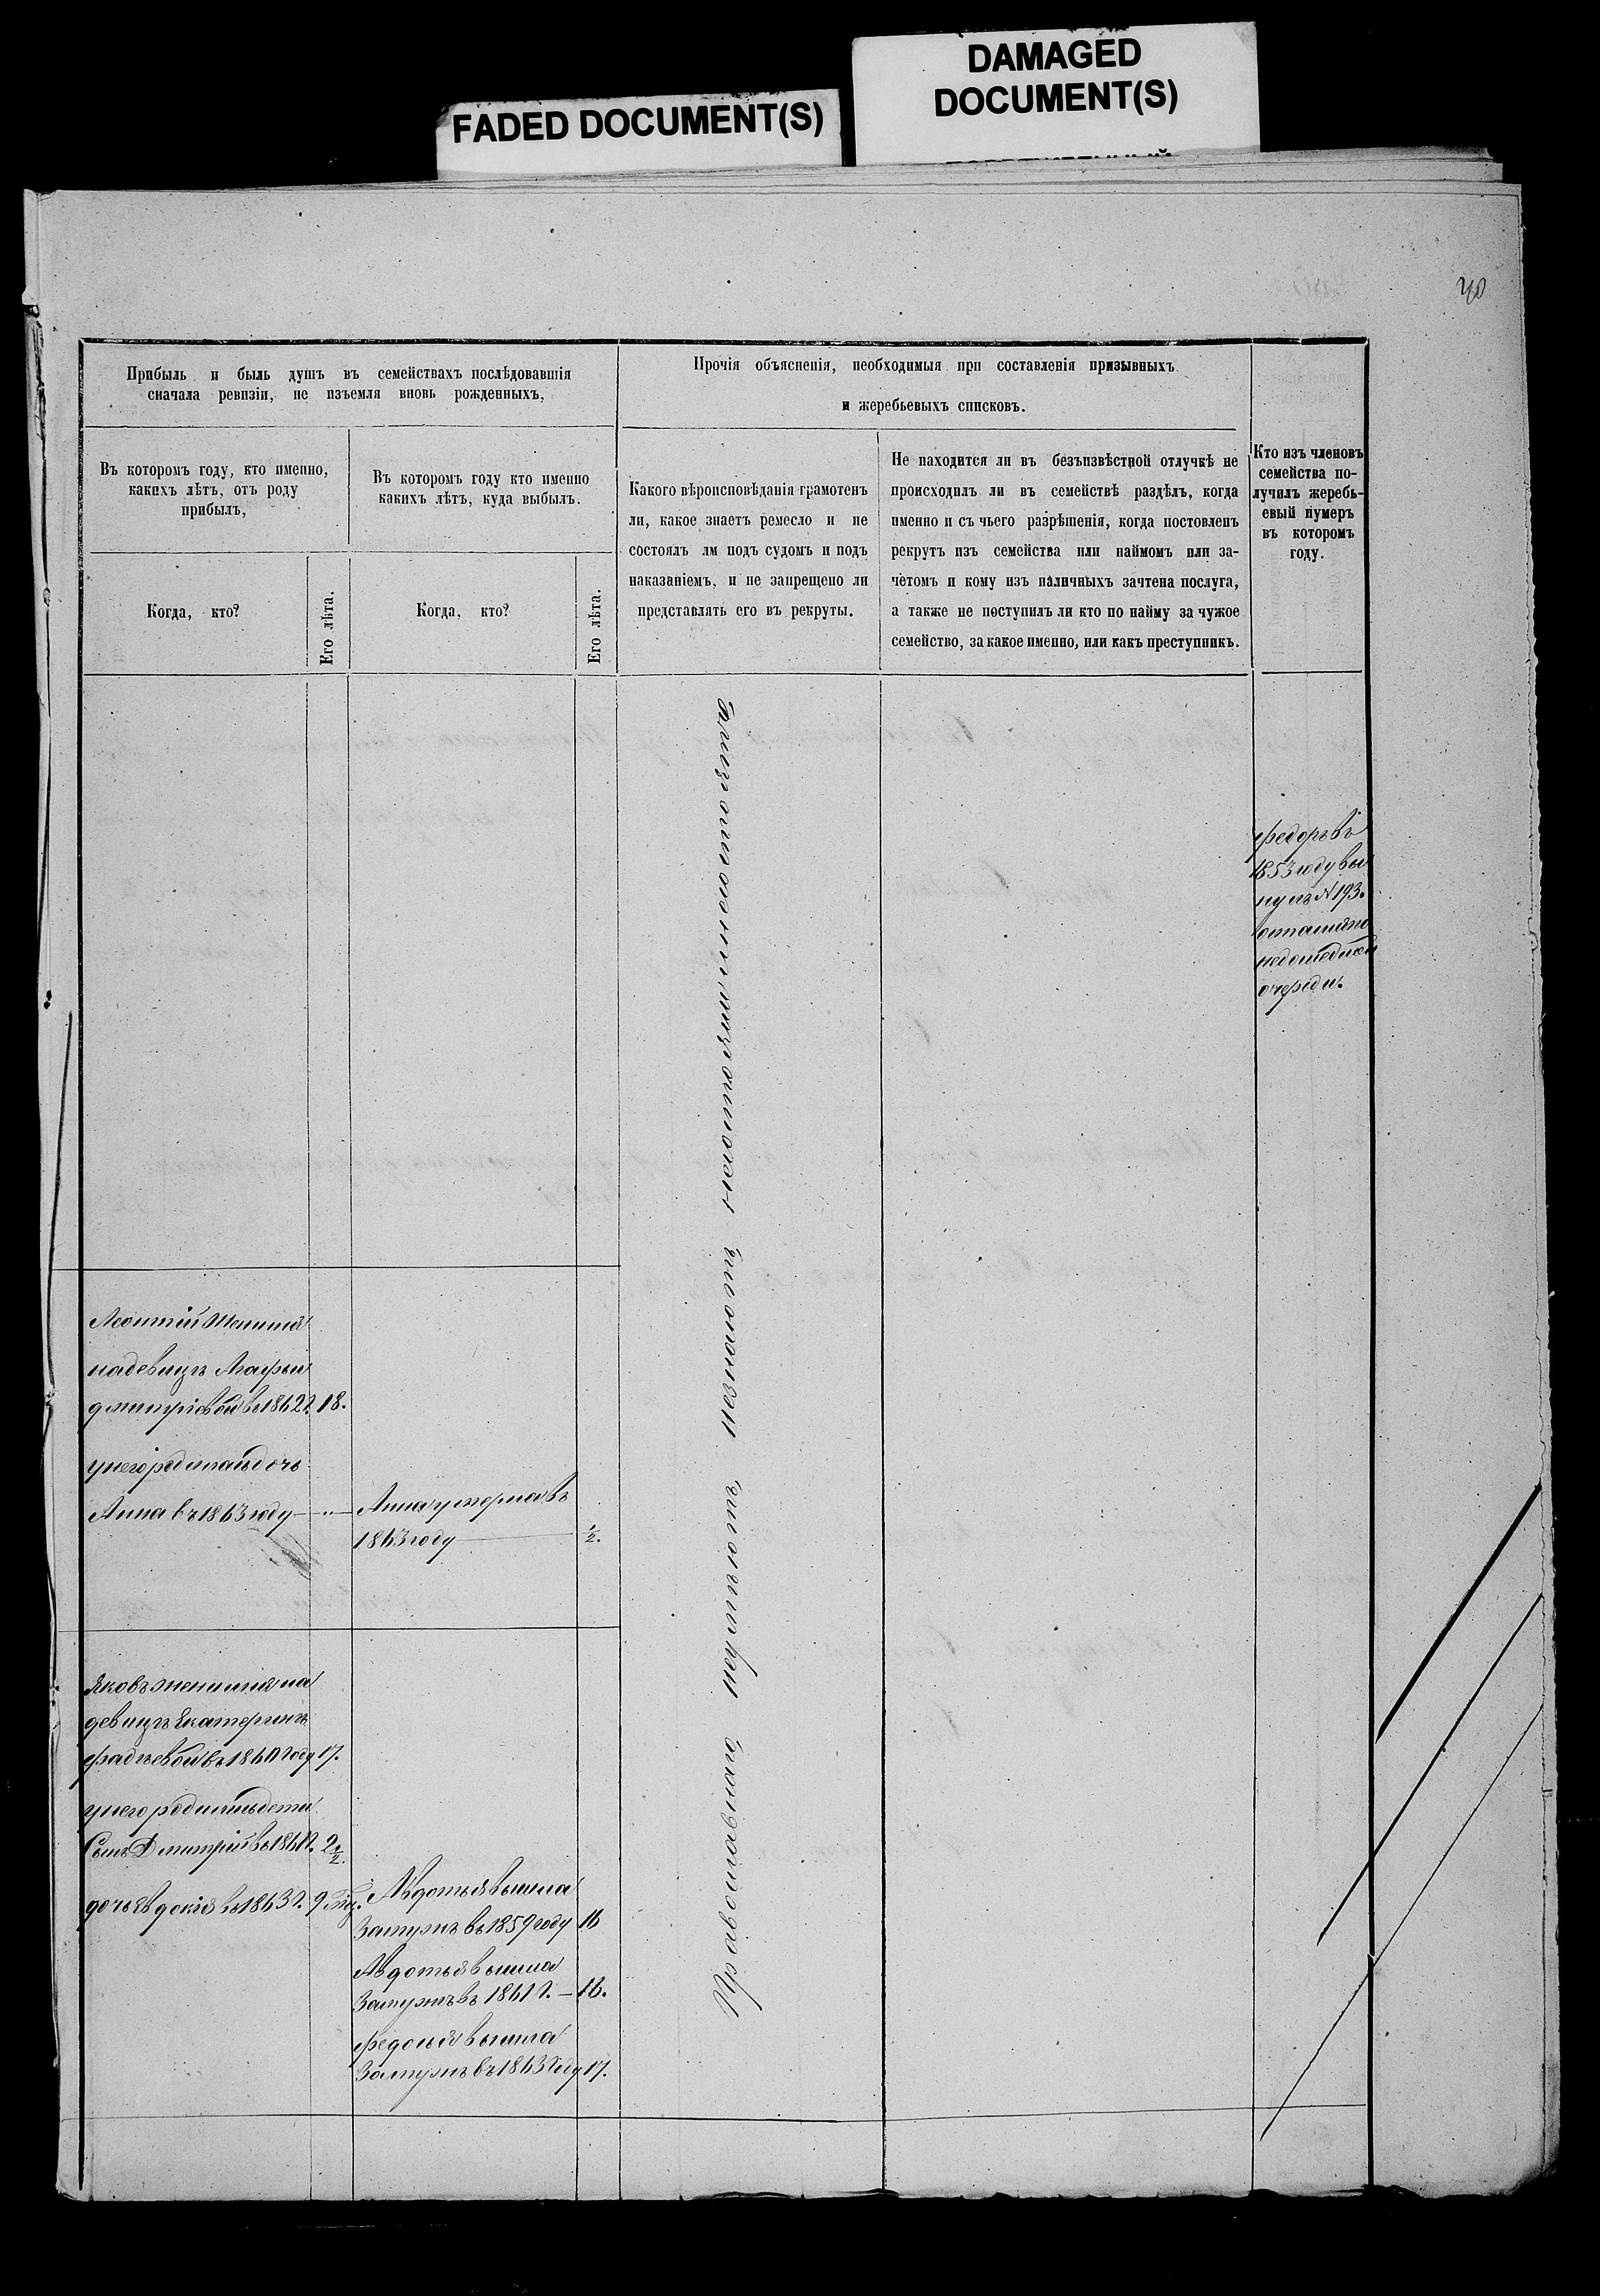 FADED DOCUMENT(S)
DAMAGED
DOCUMENT(S)
40
Прибыль и быль душъ въ семействахъ послѣдовавшія
сначала ревизіи, не изъемля вновь рожденныхъ,
Въ которомъ году, кто именно,
какихъ лѣтъ, отъ роду
прибылъ,
Въ которомъ году кто именно
какихъ лѣтъ, куда выбылъ.
Когда, кто?
Его лѣта.
Когда, кто?
Его лѣта.
Прочія объясненія, необходимыя при составленія призывныхъ
и жеребьевыхъ списковъ.
Какого вѣроисповѣданія грамотенъ
ли, какое знаетъ ремесло и не
состоялъ лм подъ судомъ и подъ
наказаніемъ, и не запрещено ли
представлять его въ рекруты.
Не находится ли въ безъизвѣстной отлучкѣ не
происходилъ ли въ семействѣ раздѣлъ, когда
именно и съ чьего разрѣшенія, когда постовленъ
рекрутъ изъ семейства или наймомъ или за-
чётомъ и кому изъ наличныхъ зачтена послуга,
а также не поступилъ ли кто по найму за чужое
семейство, за какое именно, или какъ преступникъ.
Кто изъ членовъ
семейства по-
лучилъ жеребь-
евый нумеръ
въ которомъ
году.
федоръ въ
1853 году вы
нулъ N 193.
недошедшей
очереди.
Леонтій Женился
на девицѣ Агафьи
дмитріевой въ 1862 г. 18.
у него родилась дочь
Анна въ 1863 году — " —
Анна умерла въ
1863 году — ½.
Яковъ женился на
девицѣ Екатеринѣ
у него родились дети
Сынъ Дмитрій въ
дочь Евдокія въ 1863 г. 9 мѣс.
Авдотья вышла
Замужъ въ 1859 году 16
Авдотья вышла
Замужъ въ 1861 г. — 16.
федосья вышла
Замужъ въ 1863 году 17.
Православного